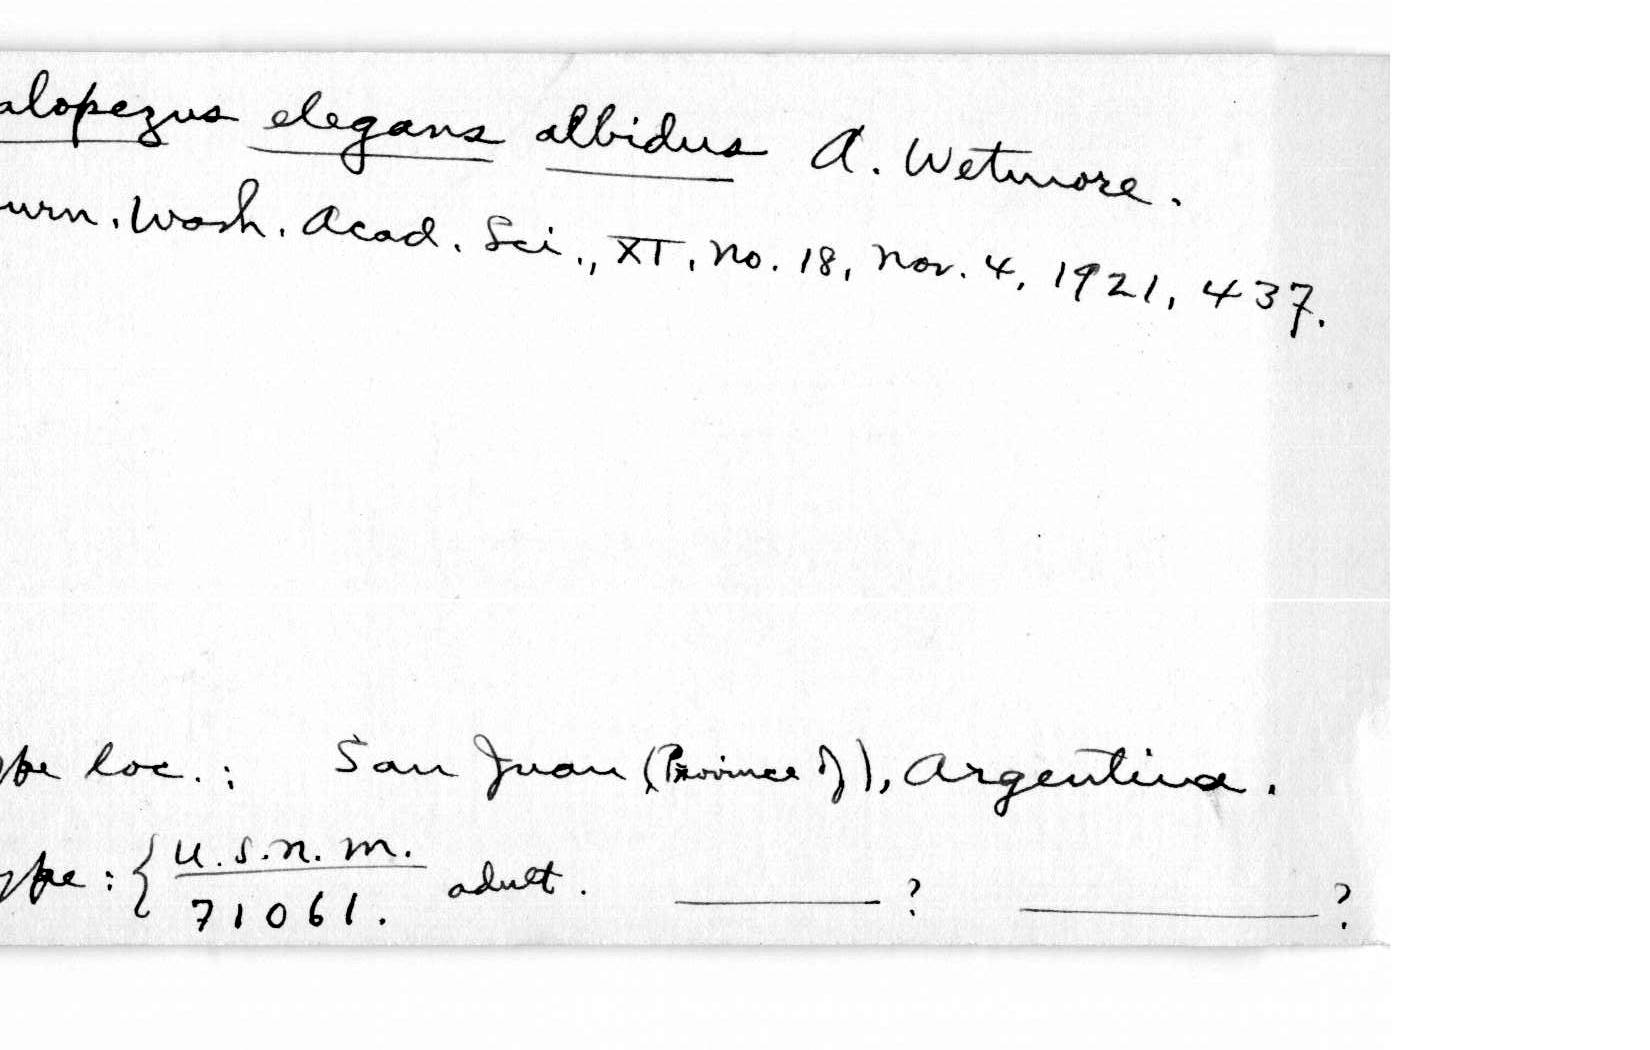 alopezus elegans albidus A. Wetmore.
urn. Wash. Acad. Sci., XI, No. 18, Nov. 4, 1921, 437.
ype loc.: San Juan (Province of), Argentina.
ype: { U.S.N.M. adult. ? ?
71061.